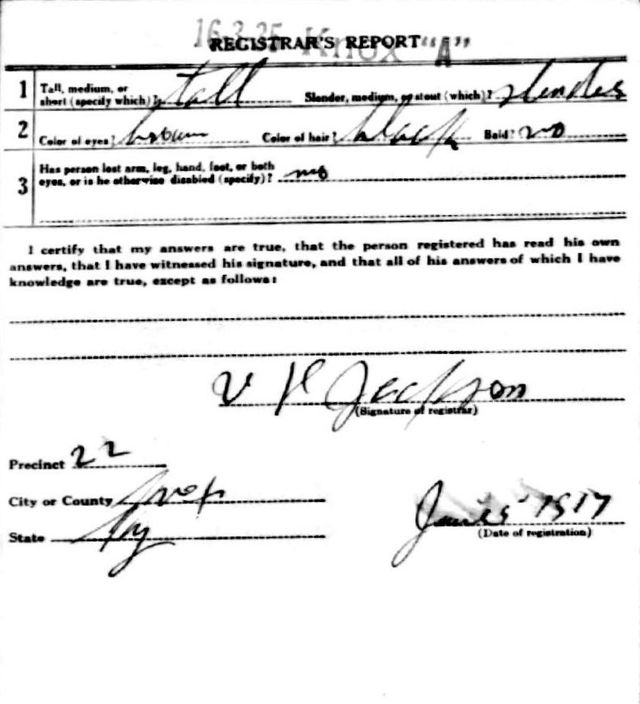 16-3-25 Knox "A"
REGISTRAR'S REPORT
1 Tall, medium, or short (specify which)? tall Slender, medium, or stout (which)? slender
2 Color of eyes? brown Color of hair? black Bald? no
3 Has person lost arm, leg, hand, foot, or both eyes, or is he otherwise disabled (specify)? no
I certify that my answers are true, that the person registered has read his own
answers, that I have witnessed his signature, and that all of his answers of which I have
knowledge are true, except as follows:
Jackson
(Signature of registrar)
Precinct 22
City or County Knox
State Ky
June 5 1917
(Date of registration)